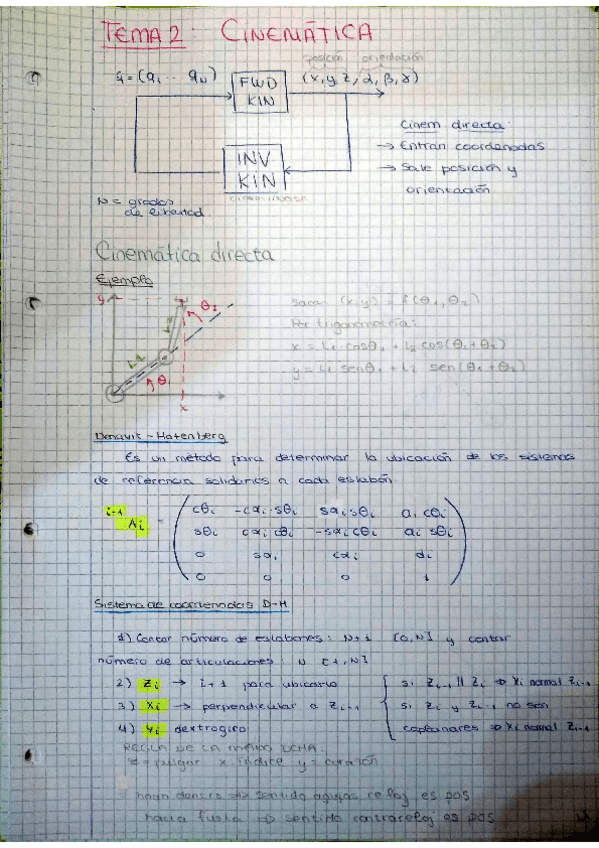 TEMA 2: CINEMÁTICA
posición orientación
q=(q₁ ... qN) FWD KIN (x,y,z,α,β,γ)
Cinem directa:
→ Entran coordenadas
INV KIN → Sale posición y orientación
cinem inversa
N = grados de libertad
Cinemática directa
Ejemplo
y θ₂
Sacar (x,y) = f(θ₁,θ₂)
L2
Por trigonometría:
L1 x = L₁ cosθ₁ + L₂ cos(θ₁+θ₂)
θ₁ y = L₁ senθ₁ + L₂ sen(θ₁+θ₂)
x
Denavit-Hatenberg
Es un método para determinar la ubicación de los sistemas
de referencia solidarios a cada eslabón.
cθi -cαi·sθi sαi·sθi ai cθi
i-1Ai = sθi cαi cθi -sαi cθi ai sθi
0 sαi cαi di
0 0 0 1
Sistema de coordenadas D-H
1) Contar número de eslabones: N+1 [0,N] y contar
número de articulaciones: N [1,N]
2) Zi → i+1 para ubicarlo si Zi-1 || Zi ⇒ Xi normal Zi-1
3) Xi → perpendicular a Zi-1 si Zi y Zi-1 no son
4) Yi dextrogiro coplanares ⇒ Xi normal Zi-1
REGLA DE LA MANO DCHA:
z=pulgar x=índice y=corazón
hacia dentro ⇒ sentido agujas reloj es pos
hacia fuera ⇒ sentido contrareloj es pos